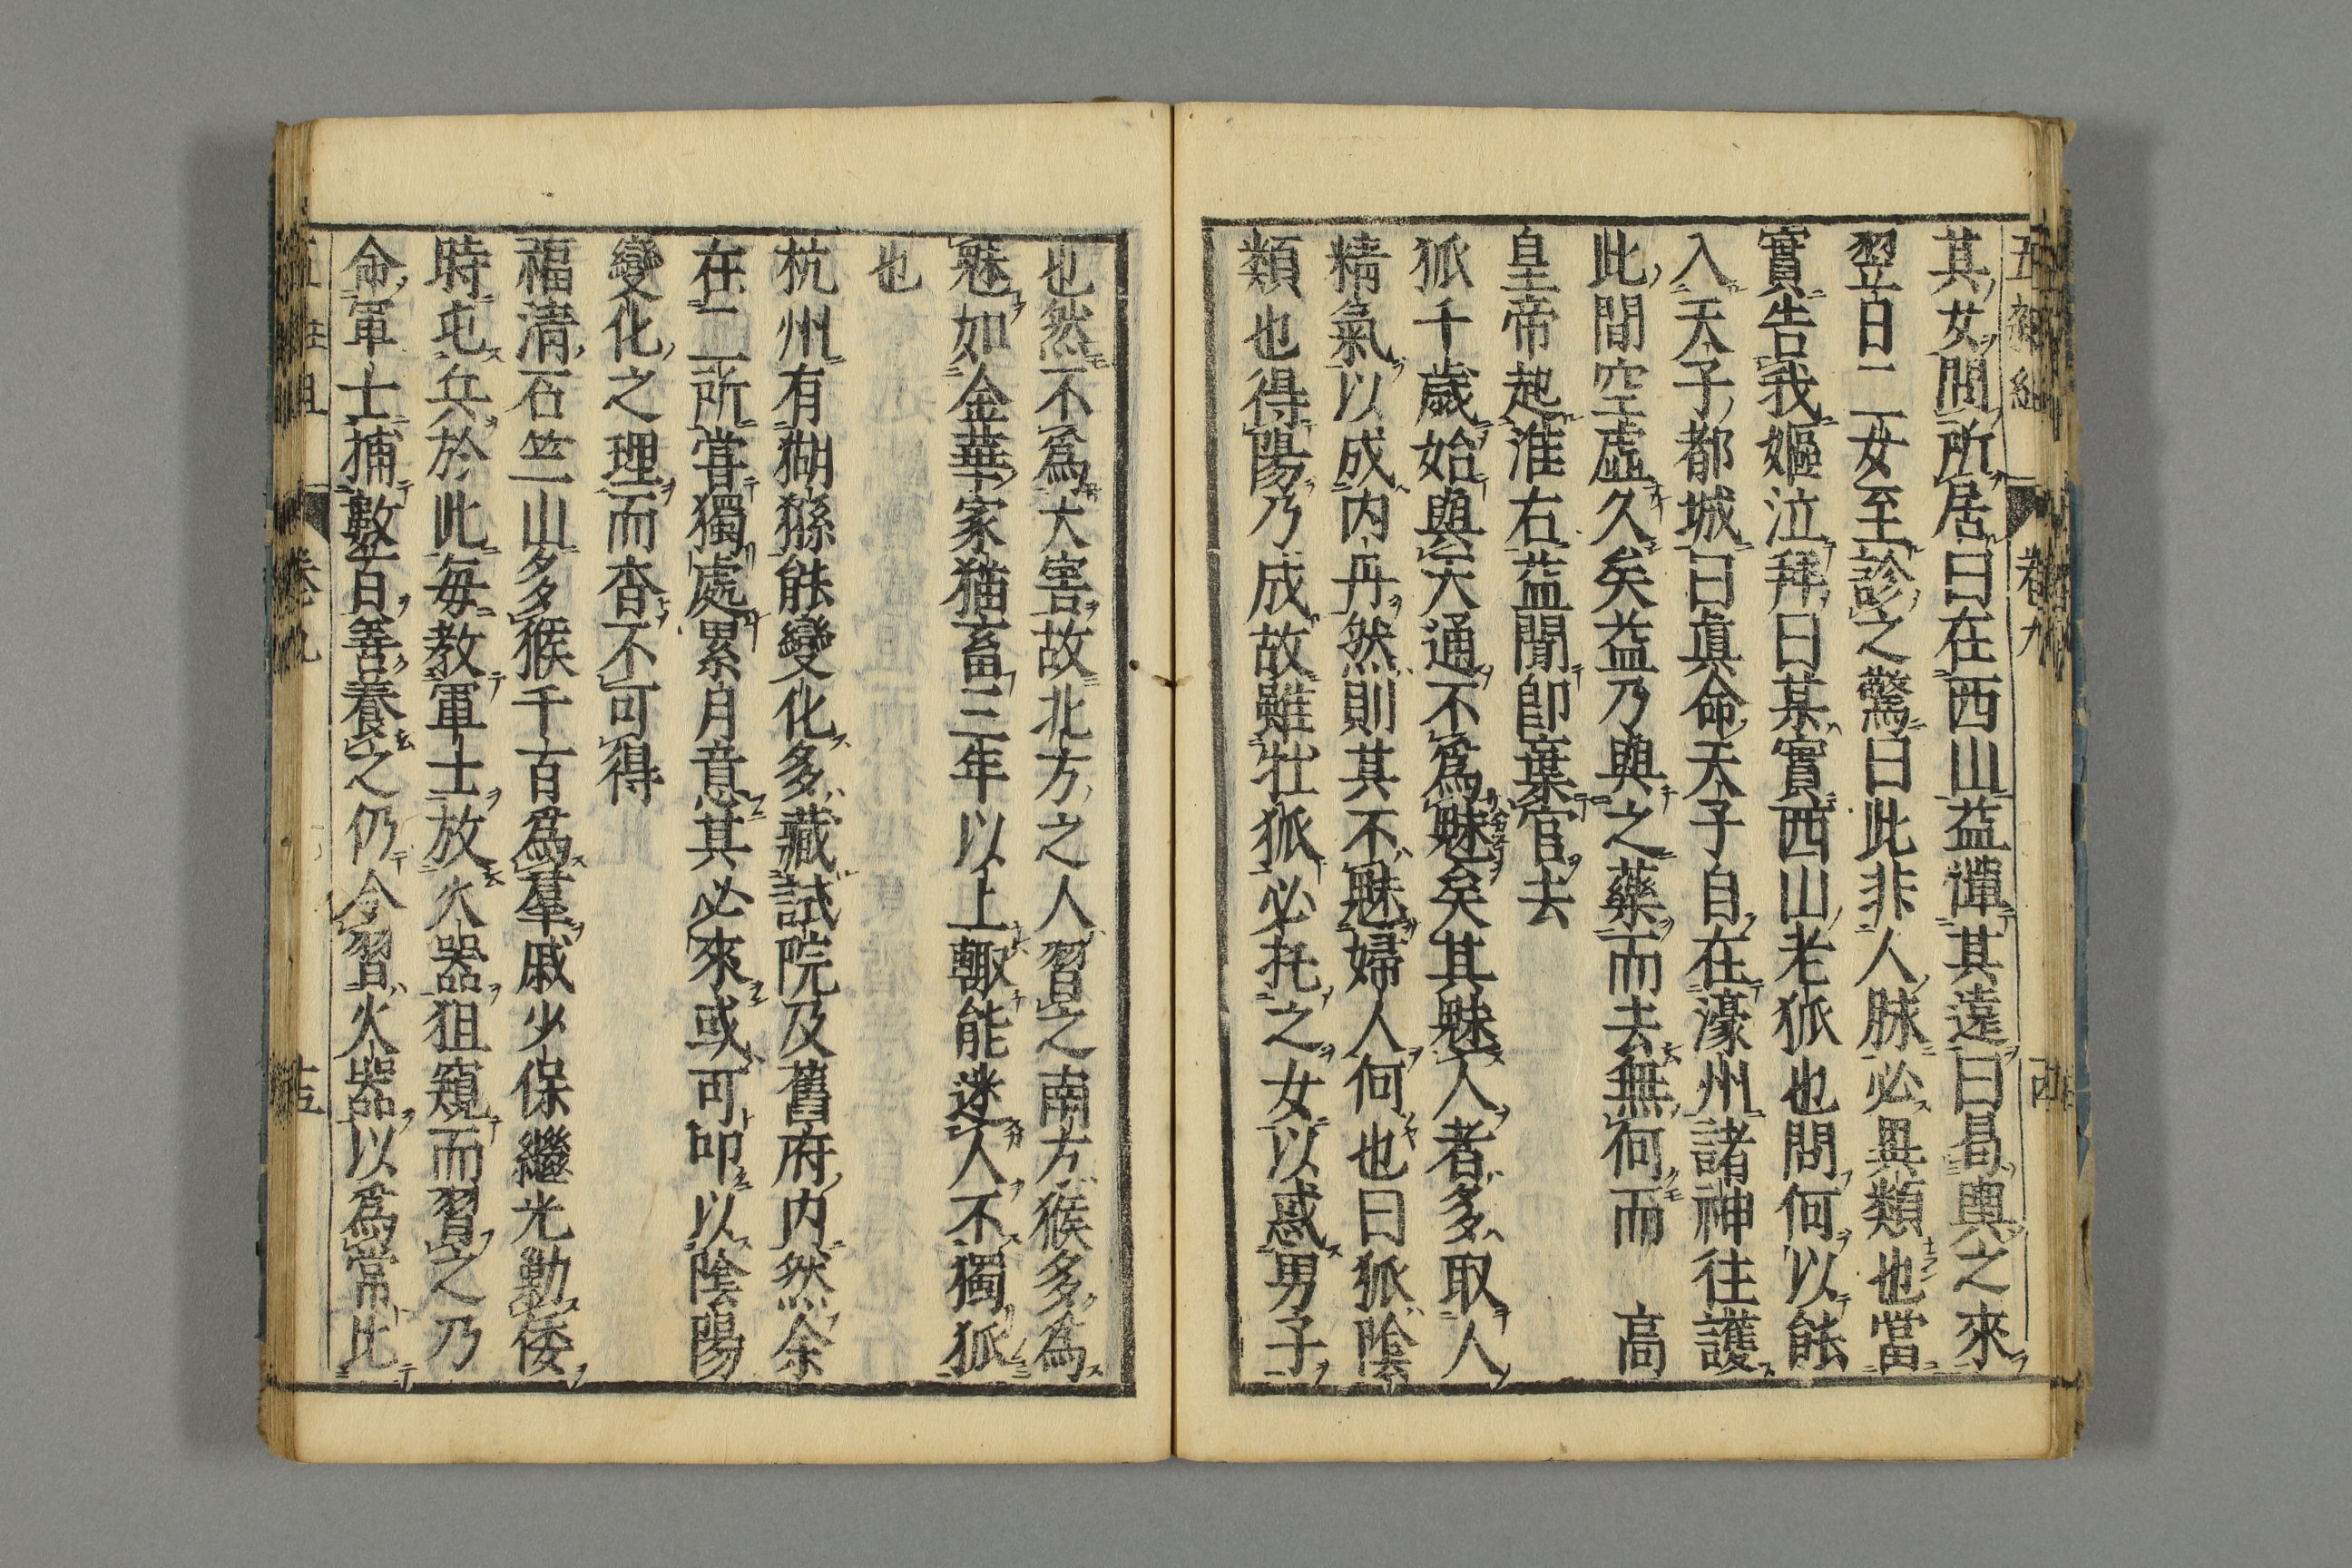 五雜組 卷九
其女問所居曰在西山益憚其遠曰曷輿之來
翌日二女至診之驚曰此非人脉必異類也當
實告我嫗泣拜曰某實西山老狐也問何以能
入天子都城曰眞命天子自在濠州諸神往護
此間空虛久矣益乃與之藥而去無何而 高
皇帝起淮右益聞卽棄官去
狐千歲始與天通不爲魅矣其魅人者多取人
精氣以成内丹然則其不魅婦人何也曰狐陰
類也得陽乃成故雖牡狐必托之女以惑男子
也然不爲大害故北方之人習之南方猴多爲
魅如金華家猫畜三年以上輙能迷人不獨狐
也
杭州有猢猻能變化多藏試院及舊府内然余
在二所嘗獨處累月意其必來或可叩以陰陽
變化之理而杳不可得
福清石竺山多猴千百爲羣戚少保繼光勦倭
時屯兵於此每教軍士放火器狙窺而習之乃
命軍士捕數百善養之仍令習火器以爲常比
卷九